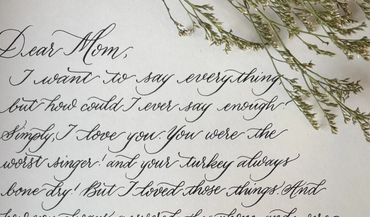 Dear Mom,
I want to say everything
but how could I ever say enough
Simply, I love you. You were the
worst singer! and your turkey always
bone dry! But I loved those things! And